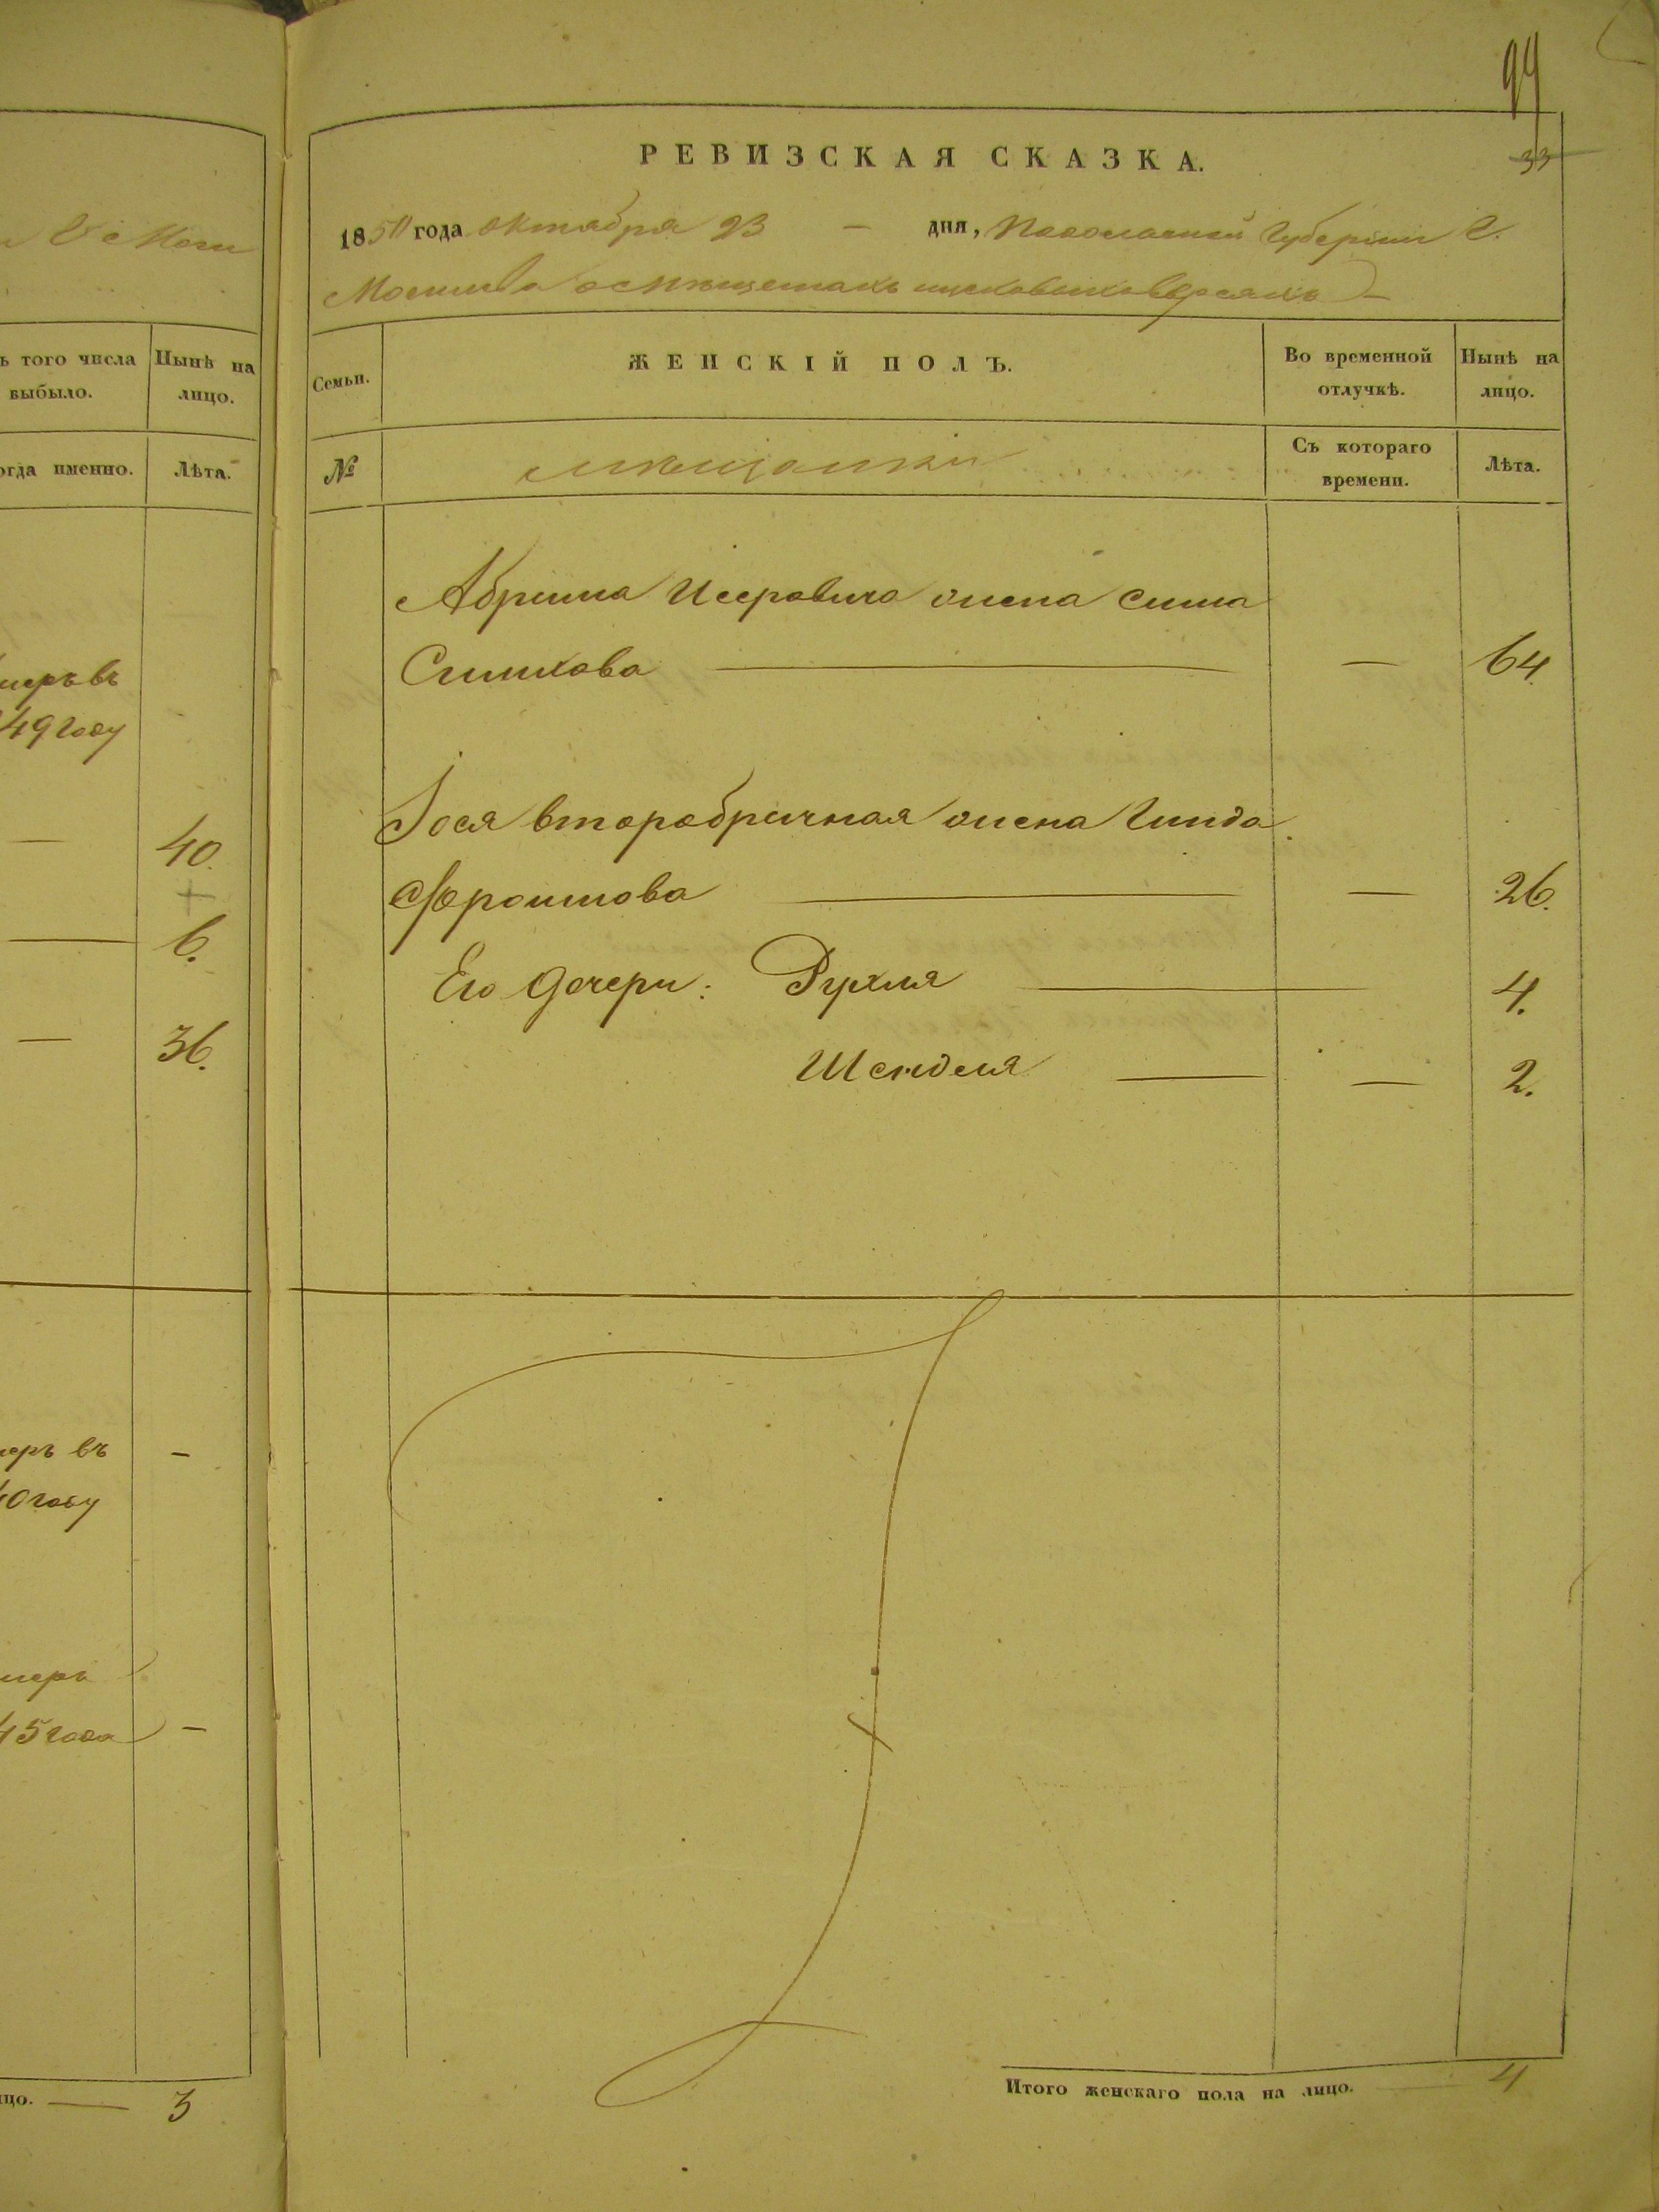 99
33
РЕВИЗСКАЯ СКАЗКА.
1850 года октября 23 — дня, Подольской Губернии Г.
Могилева о мѣщанахъ евреяхъ —
ь того числа выбыло.
Нынѣ на лицо.
Семьи.
ЖЕНСКІЙ ПОЛЪ.
Во временной отлучкѣ.
Нынѣ на лицо.
огда именно.
Лѣта.
№
мѣщанки
Съ котораго времени.
Лѣта.
Абрама Исеровича жена Сима
Симхова — — 64.
меръ въ
49 году
Іося второбрачная жена Гинда
Фроимова — — 26.
— 40.
— 6.
Его дочери: Рухля — 4.
— 36.
Шендля — — 2.
меръ въ —
40 году
меръ
45 года —
цо. — 3
Итого женскаго пола на лицо. — 4